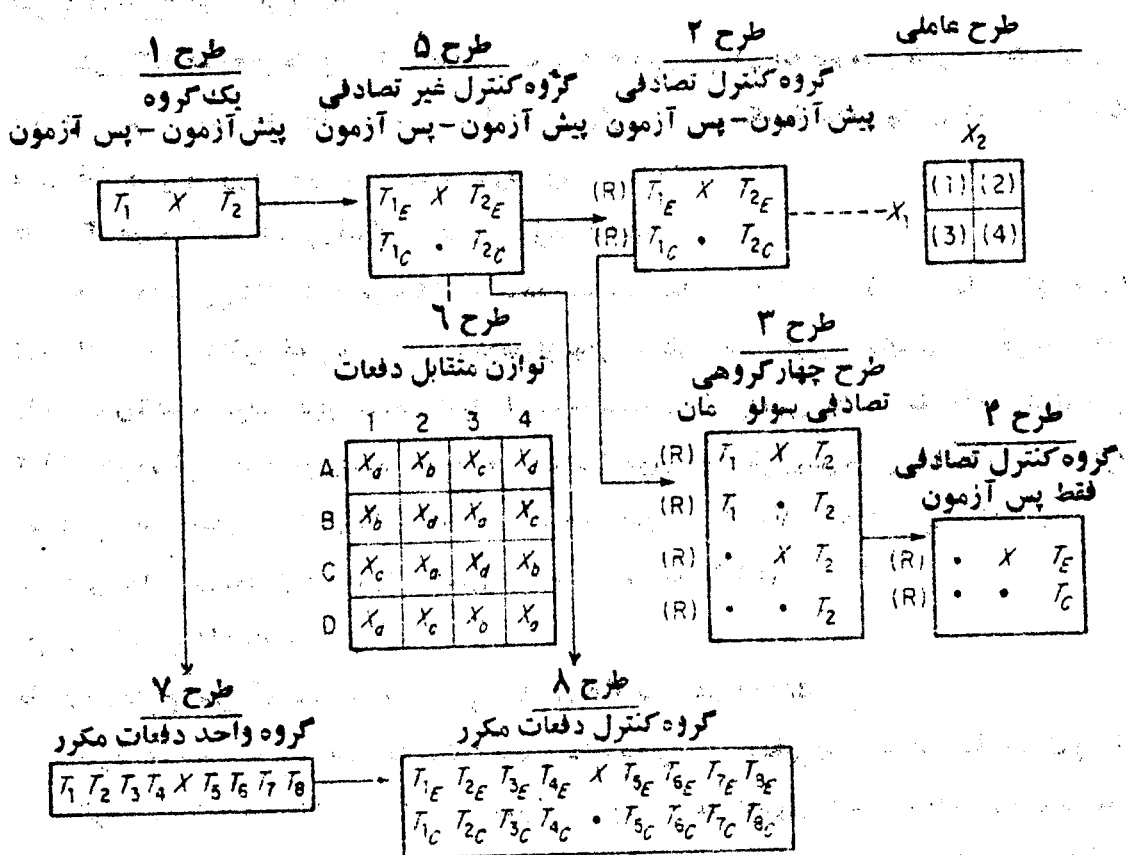 طرح عاملی
طرح ۲
گروه کنترل تصادفی
پیش آزمون - پس آزمون
طرح ۵
گروه کنترل غیر تصادفی
پیش آزمون - پس آزمون
طرح ۱
یک گروه
پیش آزمون - پس آزمون
T₁ X T₂
T₁E X T₂E
T₁C • T₂C
(R) T₁E X T₂E
(R) T₁C • T₂C
X₂
X₁
(1) (2)
(3) (4)
طرح ۶
توازن متقابل دفعات
1 2 3 4
A Xa Xb Xc Xd
B Xb Xd Xa Xc
C Xc Xa Xd Xb
D Xd Xc Xb Xa
طرح ۳
طرح چهار گروهی
تصادفی سولو مان
(R) T₁ X T₂
(R) T₁ • T₂
(R) • X T₂
(R) • • T₂
طرح ۴
گروه کنترل تصادفی
فقط پس آزمون
(R) • X TE
(R) • • TC
طرح ۷
گروه واحد دفعات مکرر
T₁ T₂ T₃ T₄ X T₅ T₆ T₇ T₈
طرح ۸
گروه کنترل دفعات مکرر
T₁E T₂E T₃E T₄E X T₅E T₆E T₇E T₈E
T₁C T₂C T₃C T₄C • T₅C T₆C T₇C T₈C